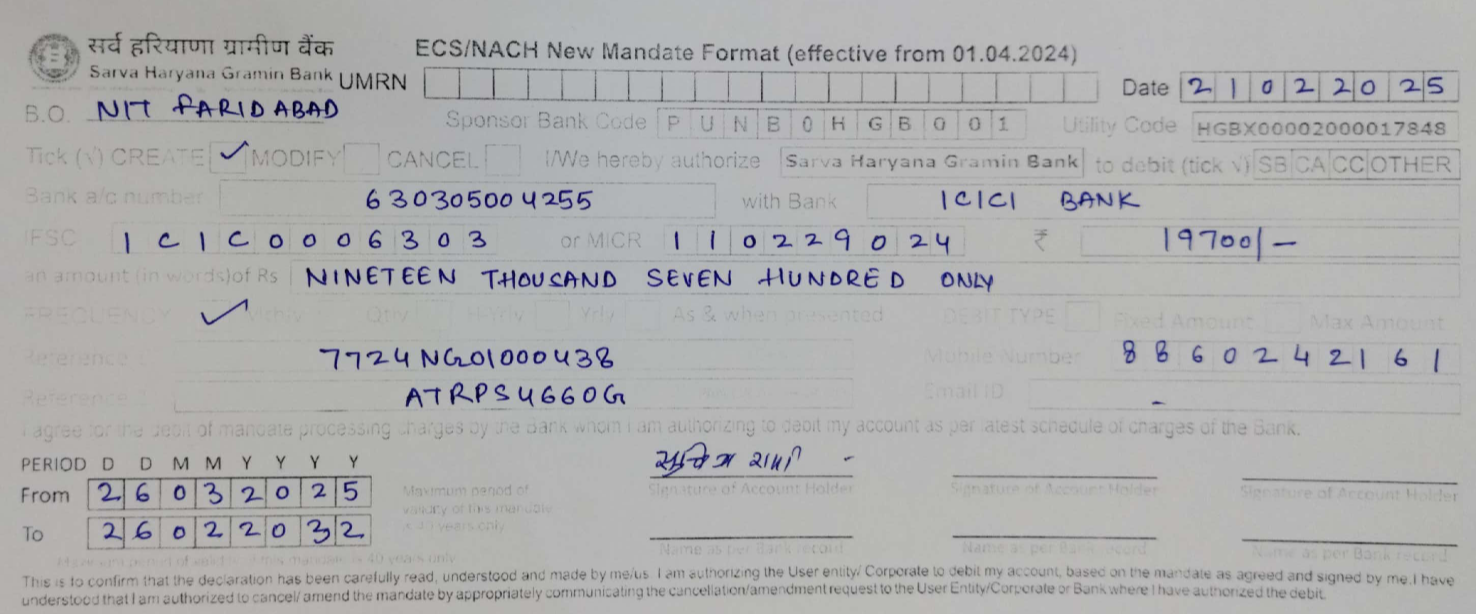 सर्व हरियाणा ग्रामीण बैंक ECS/NACH New Mandate Format (effective from 01.04.2024)
Sarva Haryana Gramin Bank UMRN Date 21022025
B.O. NIT FARIDABAD Sponsor Bank Code PUNB0HGB001 Utility Code HGBX00002000017848
Tick (√) CREATE ✓ MODIFY CANCEL I/We hereby authorize Sarva Haryana Gramin Bank to debit (tick √) SB CA CC OTHER
Bank a/c number 630305004255 with Bank ICICI BANK
IFSC ICIC0006303 or MICR 110229024 ₹ 19700/-
an amount (in words)of Rs NINETEEN THOUSAND SEVEN HUNDRED ONLY
FREQUENCY ✓ Mthly Qtly H-Yrly Yrly As & when presented DEBIT TYPE Fixed Amount Max Amount
Reference 7724NG01000438 Mobile Number 8860242161
Reference ATRPS4660G Email ID -
I agree for the debit of mandate processing charges by the Bank whom I am authorizing to debit my account as per latest schedule of charges of the Bank.
PERIOD D D M M Y Y Y Y
From 26032025 Maximum period of validity of this mandate is 40 years only Signature of Account Holder Signature of Account Holder Signature of Account Holder
To 26022032
Name as per Bank record Name as per Bank record Name as per Bank record
Maximum period of validity of this mandate is 40 years only
This is to confirm that the declaration has been carefully read, understood and made by me/us. I am authorizing the User entity/ Corporate to debit my account, based on the mandate as agreed and signed by me.I have
understood that I am authorized to cancel/ amend the mandate by appropriately communicating the cancellation/amendment request to the User Entity/Corporate or Bank where I have authorized the debit.